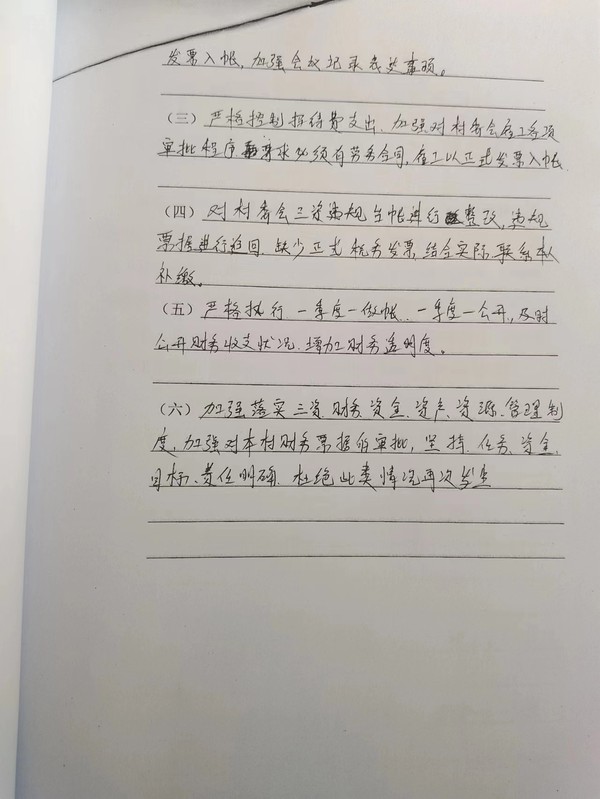 发票入帐，加强会议记录表决事项。
（三）严格控制招待费支出、加强对村委会雇工各项
审批程序要求必须有劳务合同，雇工以正式发票入帐
（四）对村委会三资违规台帐进行整改，违规
票据进行追回、缺少正式税务发票结合实际联系本人
补缴。
（五）严格执行一季度一做帐、一季度一公开，及时
公开财务收支状况、增加财务透明度。
（六）加强落实三资、财务、资金、资产、资源、管理制
度，加强对本村财务票据的审批，坚持、任务、资金、
目标、责任明确、杜绝此类情况再次发生